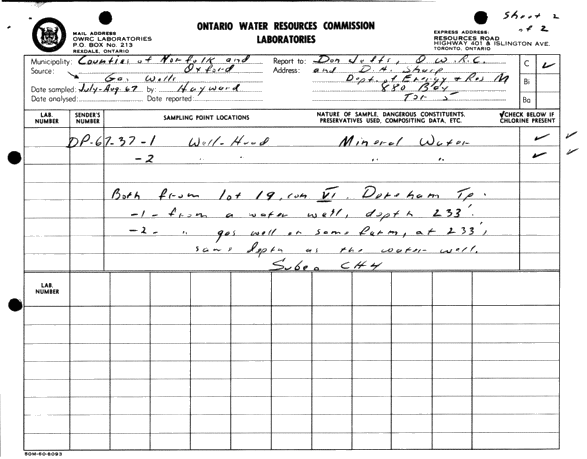 Sheet 2
of 2
ONTARIO WATER RESOURCES COMMISSION
LABORATORIES
MAIL ADDRESS
OWRC LABORATORIES
P.O. BOX No. 213
REXDALE, ONTARIO
EXPRESS ADDRESS:
RESOURCES ROAD
HIGHWAY 401 & ISLINGTON AVE.
TORONTO, ONTARIO
Municipality: Counties of Norfolk and Oxford
Source: Gas Wells
Date sampled: July-Aug. 67 by: Hayward
Date analysed: Date reported
Report to: Don Jeffs, O.W.R.C.
Address: and D.A. Sharp
Dept. of Energy & Res M
880 Bay
Tor 5
C ✓
Bi
Ba
LAB. NUMBER SENDER'S NUMBER SAMPLING POINT LOCATIONS NATURE OF SAMPLE, DANGEROUS CONSTITUENTS, PRESERVATIVES USED, COMPOSITING DATA, ETC. ✓CHECK BELOW IF CHLORINE PRESENT
DP-67-37-1 Well-Head Mineral Water ✓ ✓
-2 " " " " ✓ ✓
Both from lot 19, con VI. Dereham Tp.
-1- from a water well, depth 233'.
-2- " gas well on same farm, at 233',
same depth as the water well.
CH4
LAB. NUMBER
80M-60-8093